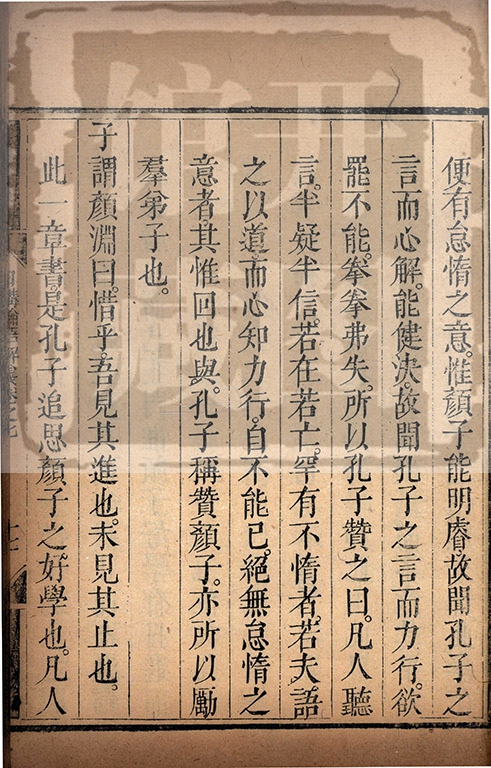 便有怠惰之意。惟顏子能明睿。故聞孔子之
言而心解。能健決。故聞孔子之言而力行。欲
罷不能。拳拳弗失。所以孔子贊之曰。凡人聽
言。半疑半信。若在若亡。罕有不惰者。若夫語
之以道。而心知力行。自不能已。絕無怠惰之
意者。其惟回也與。孔子稱贊顏子。亦所以勵
羣弟子也。
子謂顏淵曰。惜乎。吾見其進也。未見其止也。
此一章書。是孔子追思顏子之好學也。凡人